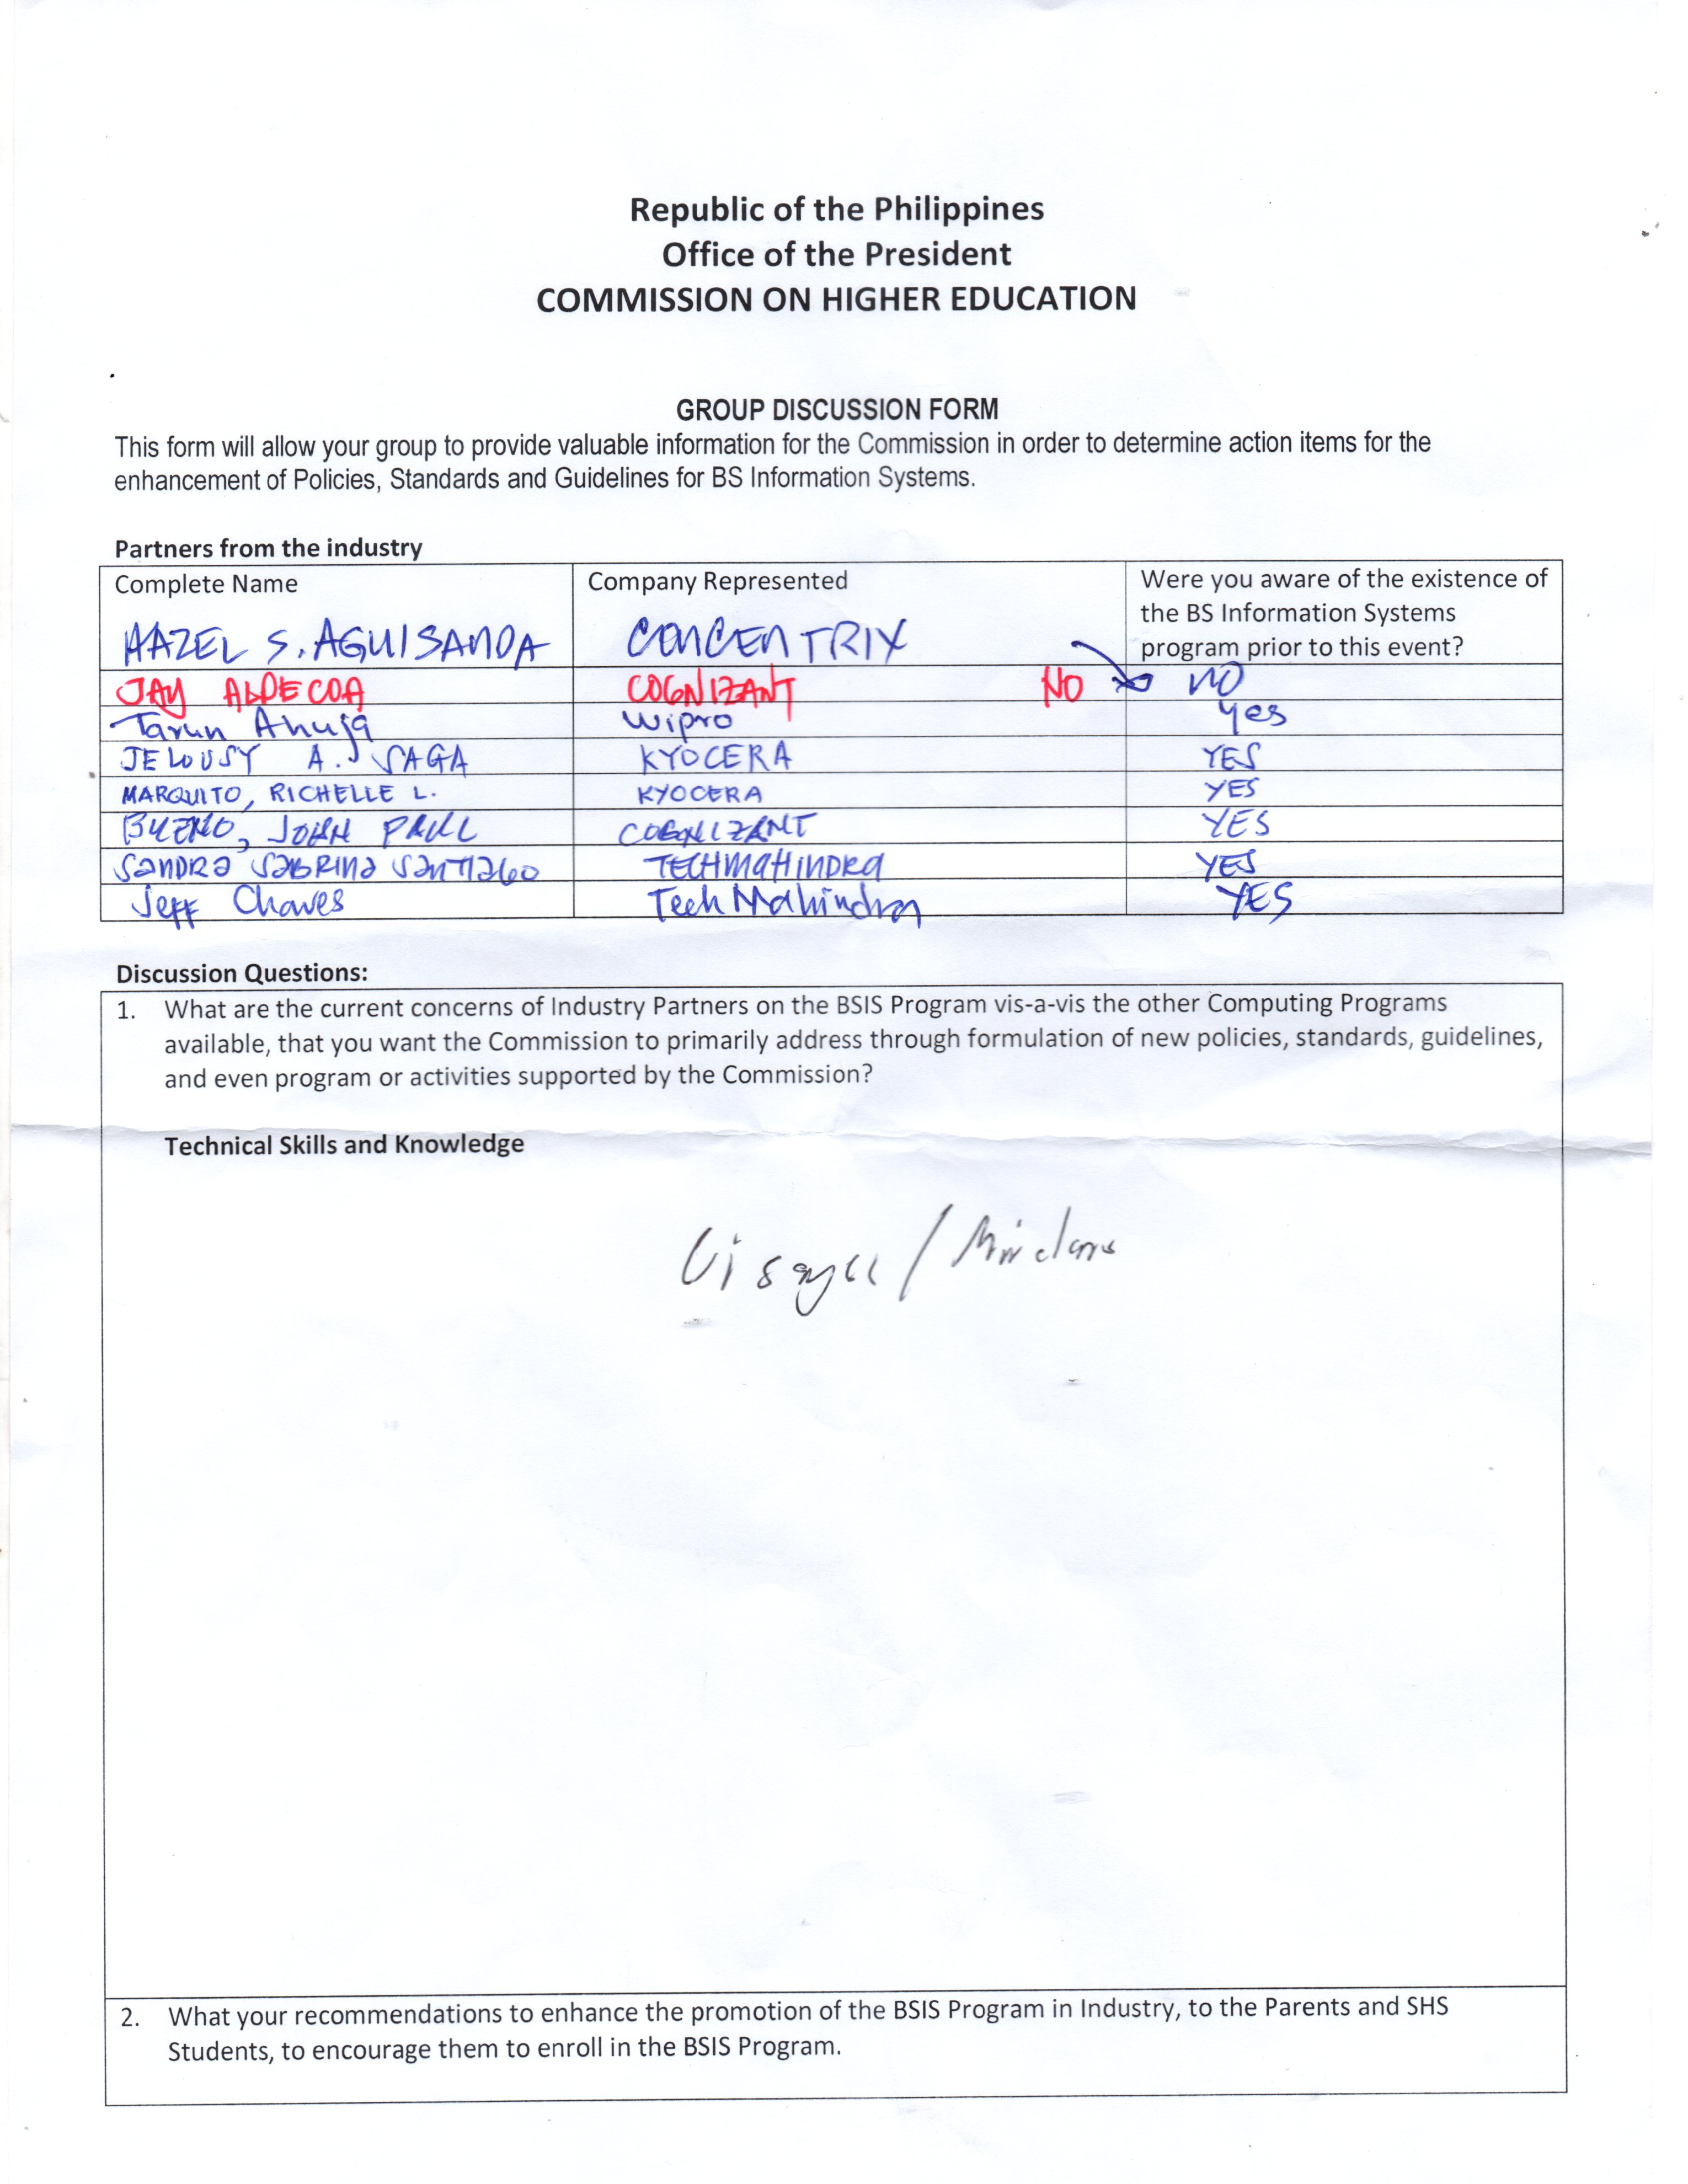 Republic of the Philippines
Office of the President
COMMISSION ON HIGHER EDUCATION
GROUP DISCUSSION FORM
This form will allow your group to provide valuable information for the Commission in order to determine action items for the
enhancement of Policies, Standards and Guidelines for BS Information Systems.
Partners from the industry
Complete Name Company Represented Were you aware of the existence of
the BS Information Systems
program prior to this event?
HAZEL S. AGUISANDA CONCENTRIX NO
JAY ALDECOA COGNIZANT NO
Tarun Ahuja Wipro Yes
JELOUSY A. SAGA KYOCERA YES
MARQUITO, RICHELLE L. KYOCERA YES
BUENO, JOHN PAUL COGNIZANT YES
SANDRA SABRINA SANTIAGO TECHMAHINDRA YES
Jeff Chaves Tech Mahindra YES
Discussion Questions:
1. What are the current concerns of Industry Partners on the BSIS Program vis-a-vis the other Computing Programs
available, that you want the Commission to primarily address through formulation of new policies, standards, guidelines,
and even program or activities supported by the Commission?
Technical Skills and Knowledge
Visayas / Mindanao
2. What your recommendations to enhance the promotion of the BSIS Program in Industry, to the Parents and SHS
Students, to encourage them to enroll in the BSIS Program.